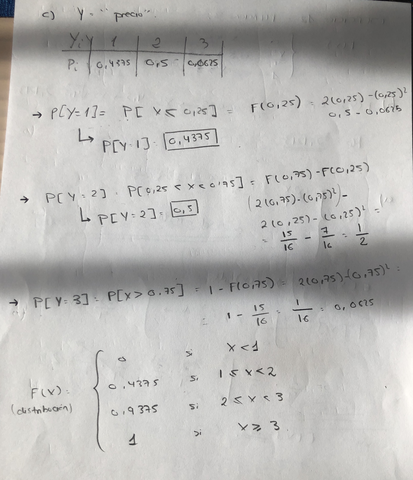 c) Y = "precio"
Yi Y | 1 | 2 | 3
Pi | 0,4375 | 0,5 | 0,0625
→ P[Y=1] = P[X ≤ 0,25] = F(0,25) = 2(0,25) - (0,25)²
0,5 - 0,0625
↳ P[Y=1] = 0,4375
→ P[Y=2] = P[0,25 < X < 0,75] = F(0,75) - F(0,25)
↳ P[Y=2] = 0,5
(2(0,75) - (0,75)²) -
2(0,25) - (0,25)² =
= 15/16 - 7/16 = 1/2
→ P[Y=3] = P[X > 0,75] = 1 - F(0,75) = 2(0,75) - (0,75)² =
= 1 - 15/16 = 1/16 = 0,0625
0 si x < 1
F(X) = 0,4375 si 1 ≤ x < 2
(distribución) 0,9375 si 2 ≤ x < 3
1 si x ≥ 3